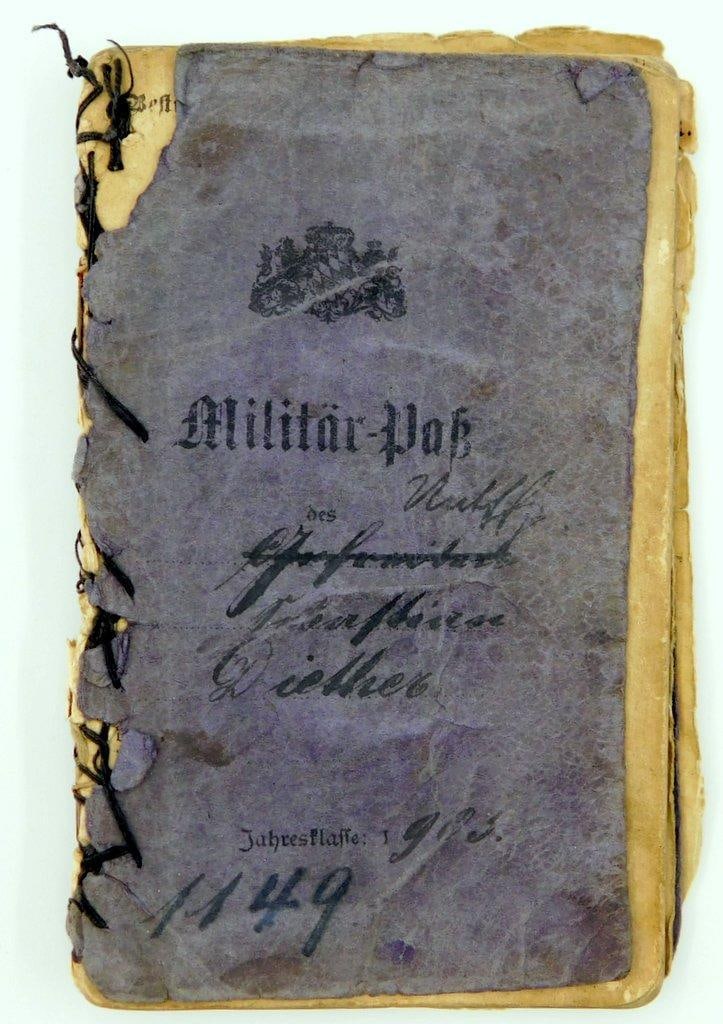 Best
Militär-Paß
des Untffz.
Gefreiten
Sebastian
Diether
Jahresklasse: 1903.
1149